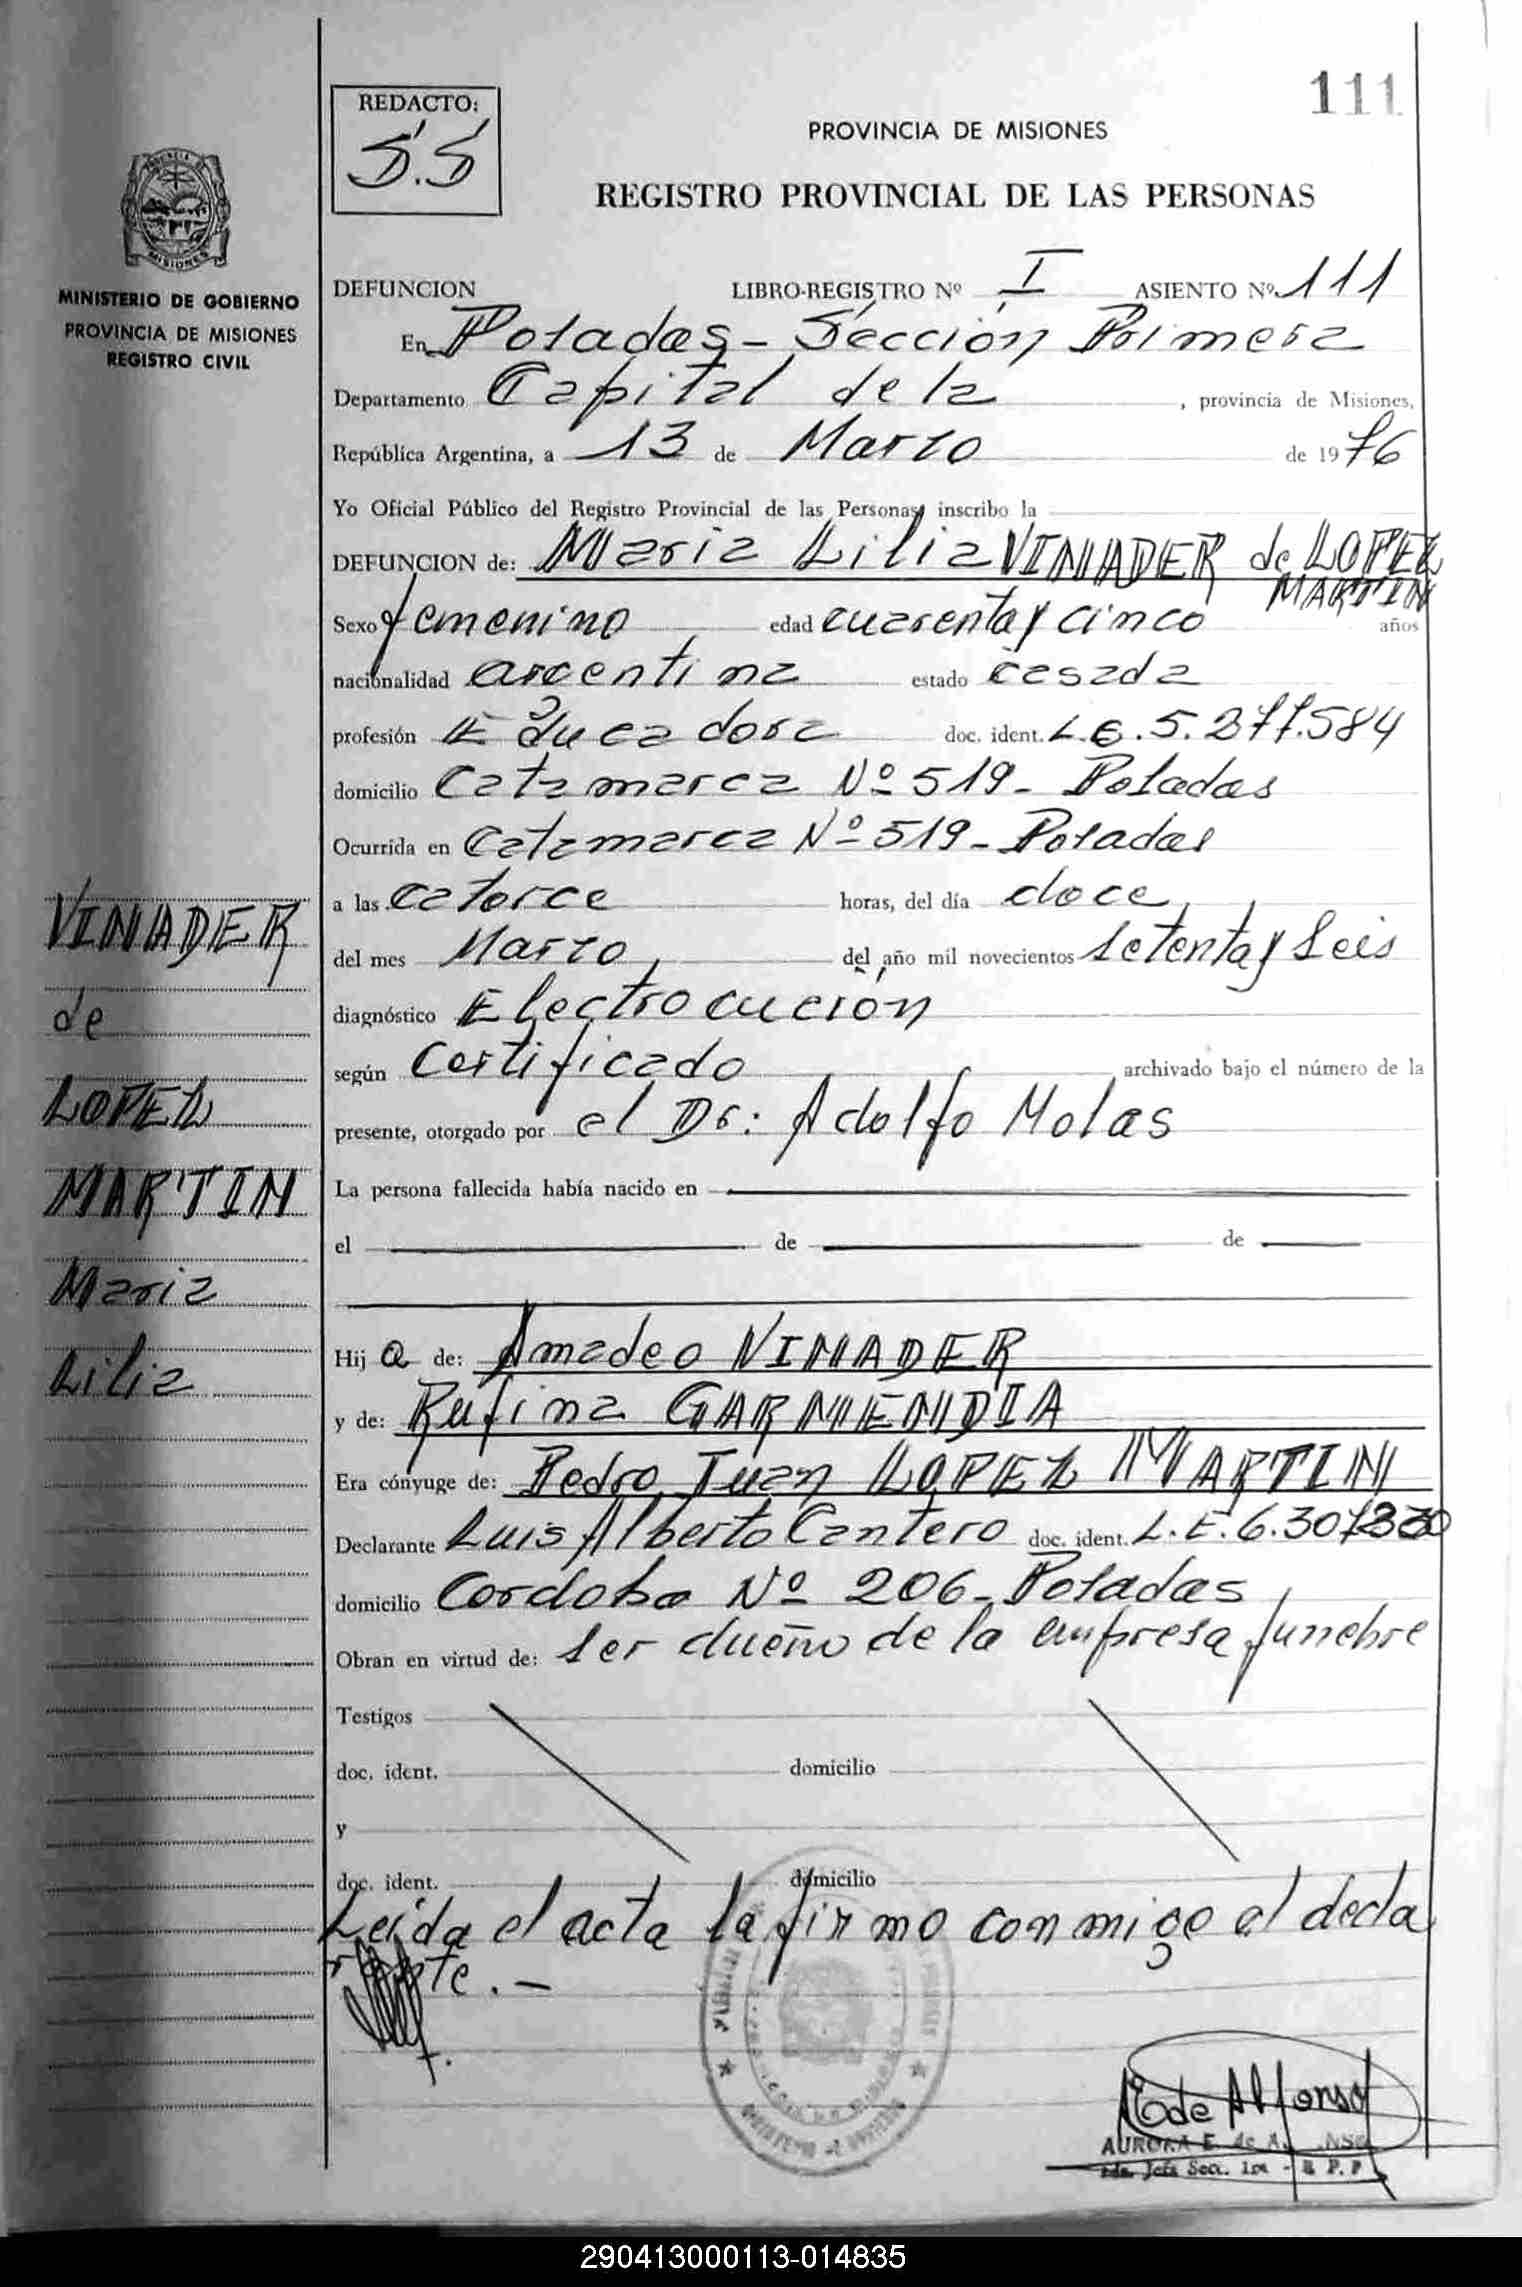 111
REDACTO:
S.S
PROVINCIA DE MISIONES
REGISTRO PROVINCIAL DE LAS PERSONAS
MISIONES
MINISTERIO DE GOBIERNO
PROVINCIA DE MISIONES
REGISTRO CIVIL
DEFUNCION LIBRO-REGISTRO Nº I ASIENTO Nº 111
En Posadas - Sección Primera
Departamento Capital de la , provincia de Misiones,
República Argentina, a 13 de Marzo de 1976
Yo Oficial Público del Registro Provincial de las Personas inscribo la
DEFUNCION de: Maria Lilia VINADER de LOPEZ
MARTIN
Sexo femenino edad cuarenta y cinco años
nacionalidad argentina estado casada
profesión Educadora doc. ident. L.C.5.277.584
domicilio Catamarca Nº 519 - Posadas
Ocurrida en Catamarca Nº 519 - Posadas
a las catorce horas, del día doce
del mes Marzo del año mil novecientos setenta y seis
diagnóstico Electrocución
según Certificado archivado bajo el número de la
presente, otorgado por el Dr: Adolfo Molas
La persona fallecida había nacido en
el de de
Hija de: Amadeo VINADER
y de: Rufina GARMENDIA
Era cónyuge de: Pedro Juan LOPEZ MARTIN
Declarante Luis Alberto Cantero doc. ident. L.E.
domicilio Cordoba Nº 206 - Posadas
Obran en virtud de: ser dueño de la empresa funebre
Testigos
doc. ident. domicilio
y
doc. ident. domicilio
Leída el acta la firmo conmigo el decla
rante. -
VINADER
de
LOPEZ
MARTIN
Maria
Lilia
E de Alfonso
AURORA E. de
Jefa Secc. 1ra - R. P. P.
290413000113-014835